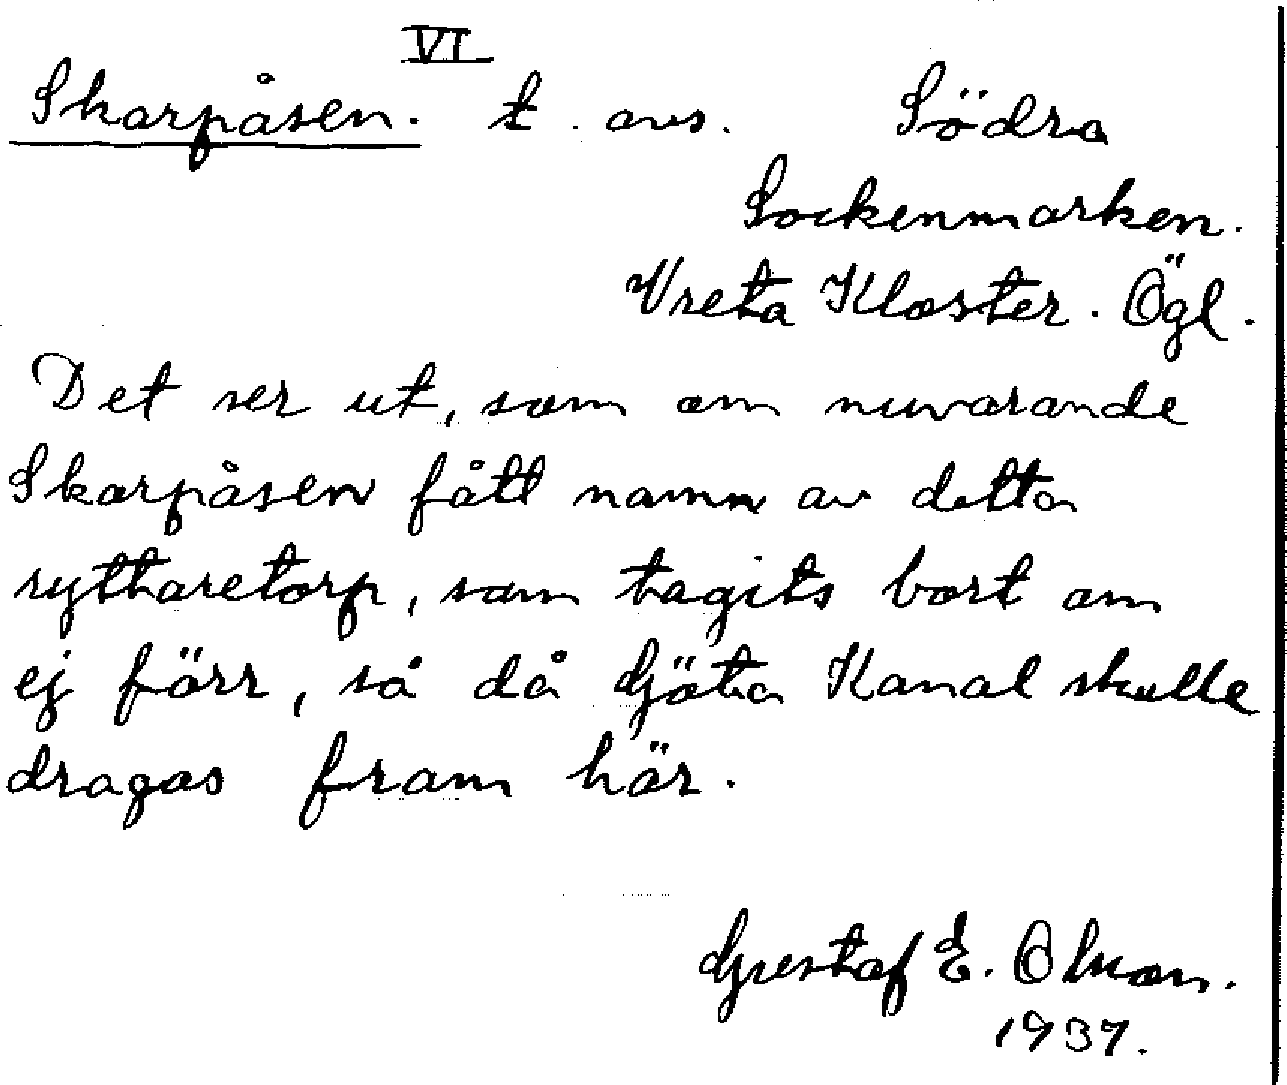 VI
Skarpåsen. t. avs. Södra
Sockenmarken.
Vreta Kloster. Ögl.
Det ser ut, som om nuvarande
Skarpåsen fått namn av detta
ryttaretorp, som tagits bort om
ej förr, så då Göta Kanal skulle
dragas fram här.
Gustaf E. Olsson.
1937.